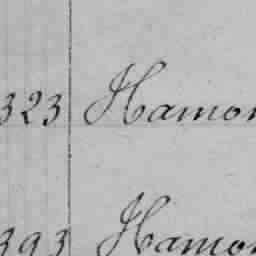 323 Hamon
393 Hamon